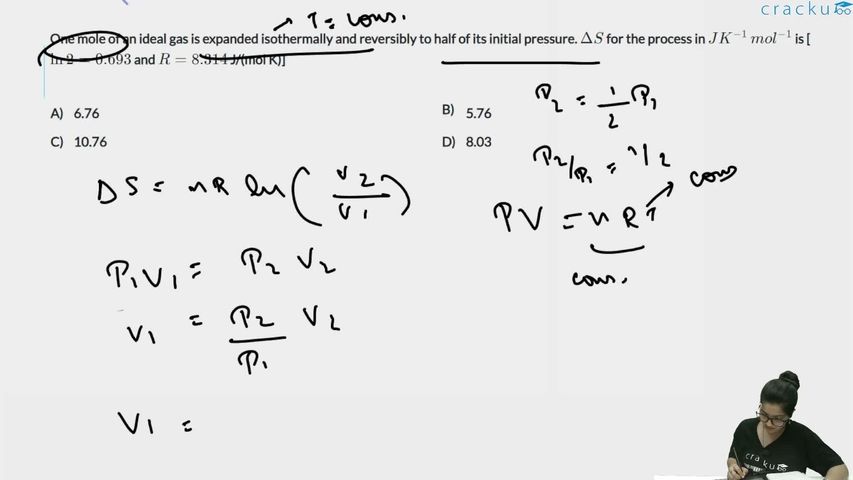 cracku
→ T = cons.
One mole of an ideal gas is expanded isothermally and reversibly to half of its initial pressure. ΔS for the process in J K⁻¹ mol⁻¹ is [
ln 2 = 0.693 and R = 8.314 J/(mol K)]
A) 6.76
B) 5.76
C) 10.76
D) 8.03
P₂ = 1/2 P₁
P₂/P₁ = 1/2
ΔS = nR ln (V₂/V₁)
PV = nRT → cons
cons.
P₁V₁ = P₂ V₂
V₁ = P₂/P₁ V₂
V₁ =
cracku